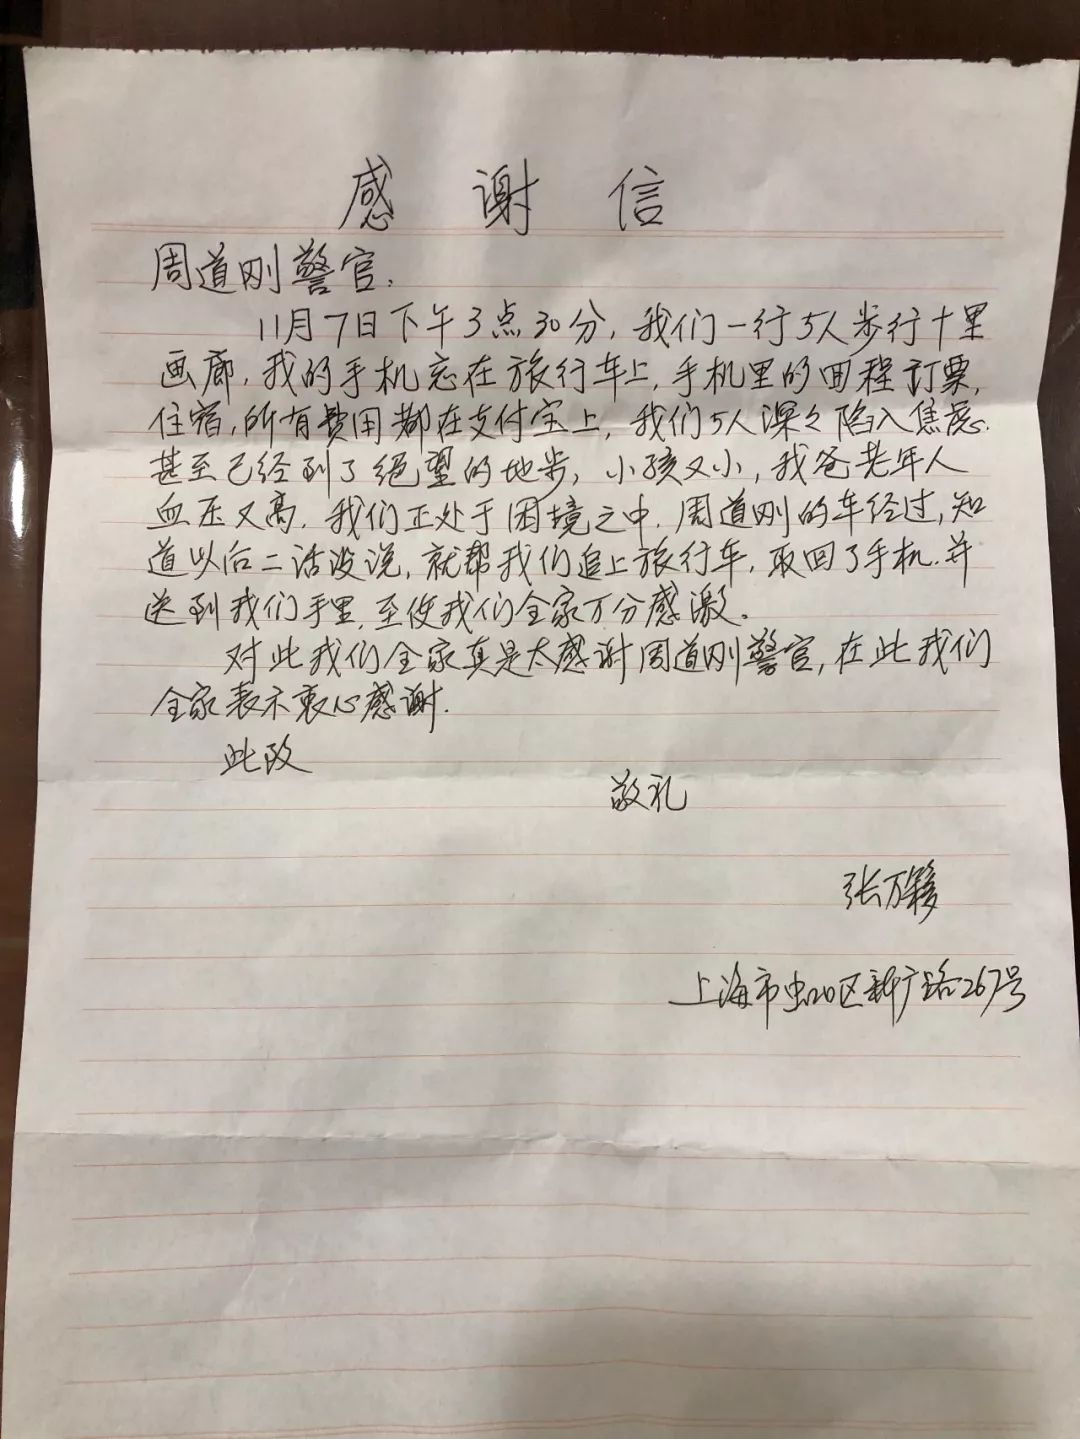 感谢信
周道刚警官.
11月7日下午3点30分,我们一行5人步行十里
画廊,我的手机忘在旅行车上,手机里的回程订票,
住宿,所有费用都在支付宝上,我们5人深々陷入焦虑.
甚至已经到了绝望的地步,小孩又小,我爸老年人
血压又高.我们正处于困境之中.周道刚的车经过,知
道以后二话没说,就帮我们追上旅行车,取回了手机.并
送到我们手里,至使我们全家万分感激。
对此我们全家真是太感谢周道刚警官,在此我们
全家表示衷心感谢.
此致
敬礼
张万
上海市虹口区新广路267号